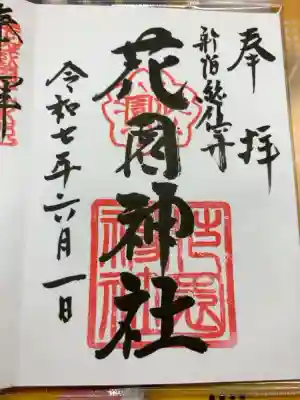 奉拝
新宿総鎮守
花園神社
令和七年六月一日